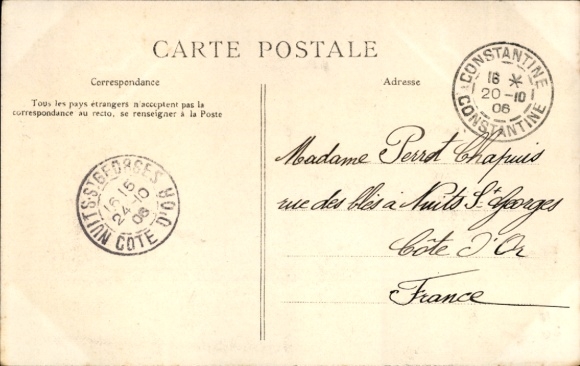 CARTE POSTALE
Correspondance
Tous les pays étrangers n'acceptent pas la
correspondance au recto, se renseigner à la Poste
Adresse
CONSTANTINE
18 *
20 -10
06
CONSTANTINE
NUITS-ST-GEORGES
16 15
24 -10
06
CÔTE D'OR
Madame Perrot Chapuis
rue des blés à Nuits St Georges
Côte d'Or
France